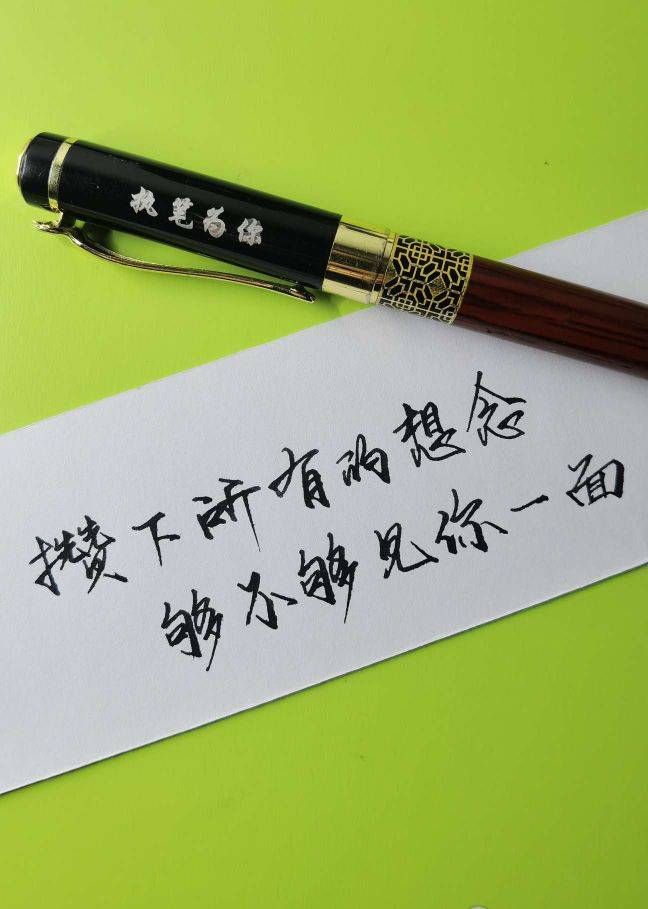 执笔为你
攒下所有的想念
够不够见你一面